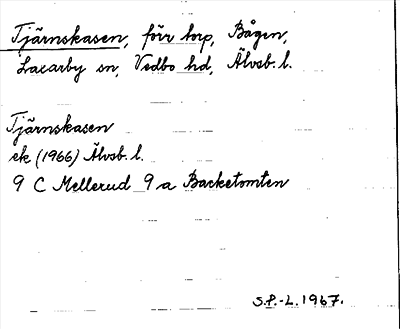 Tjärnskasen, förr torp, Bågen,
Laxarby sn, Vedbo hd, Älvsb. l.
Tjärnskasen
ek (1966) Älvsb. l.
9 C Mellerud 9 a Backetomten
S.P.-L. 1967.